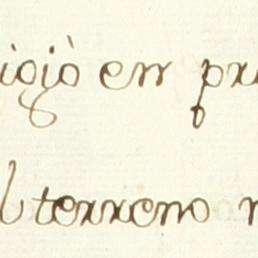 igiò en pr
l terreno